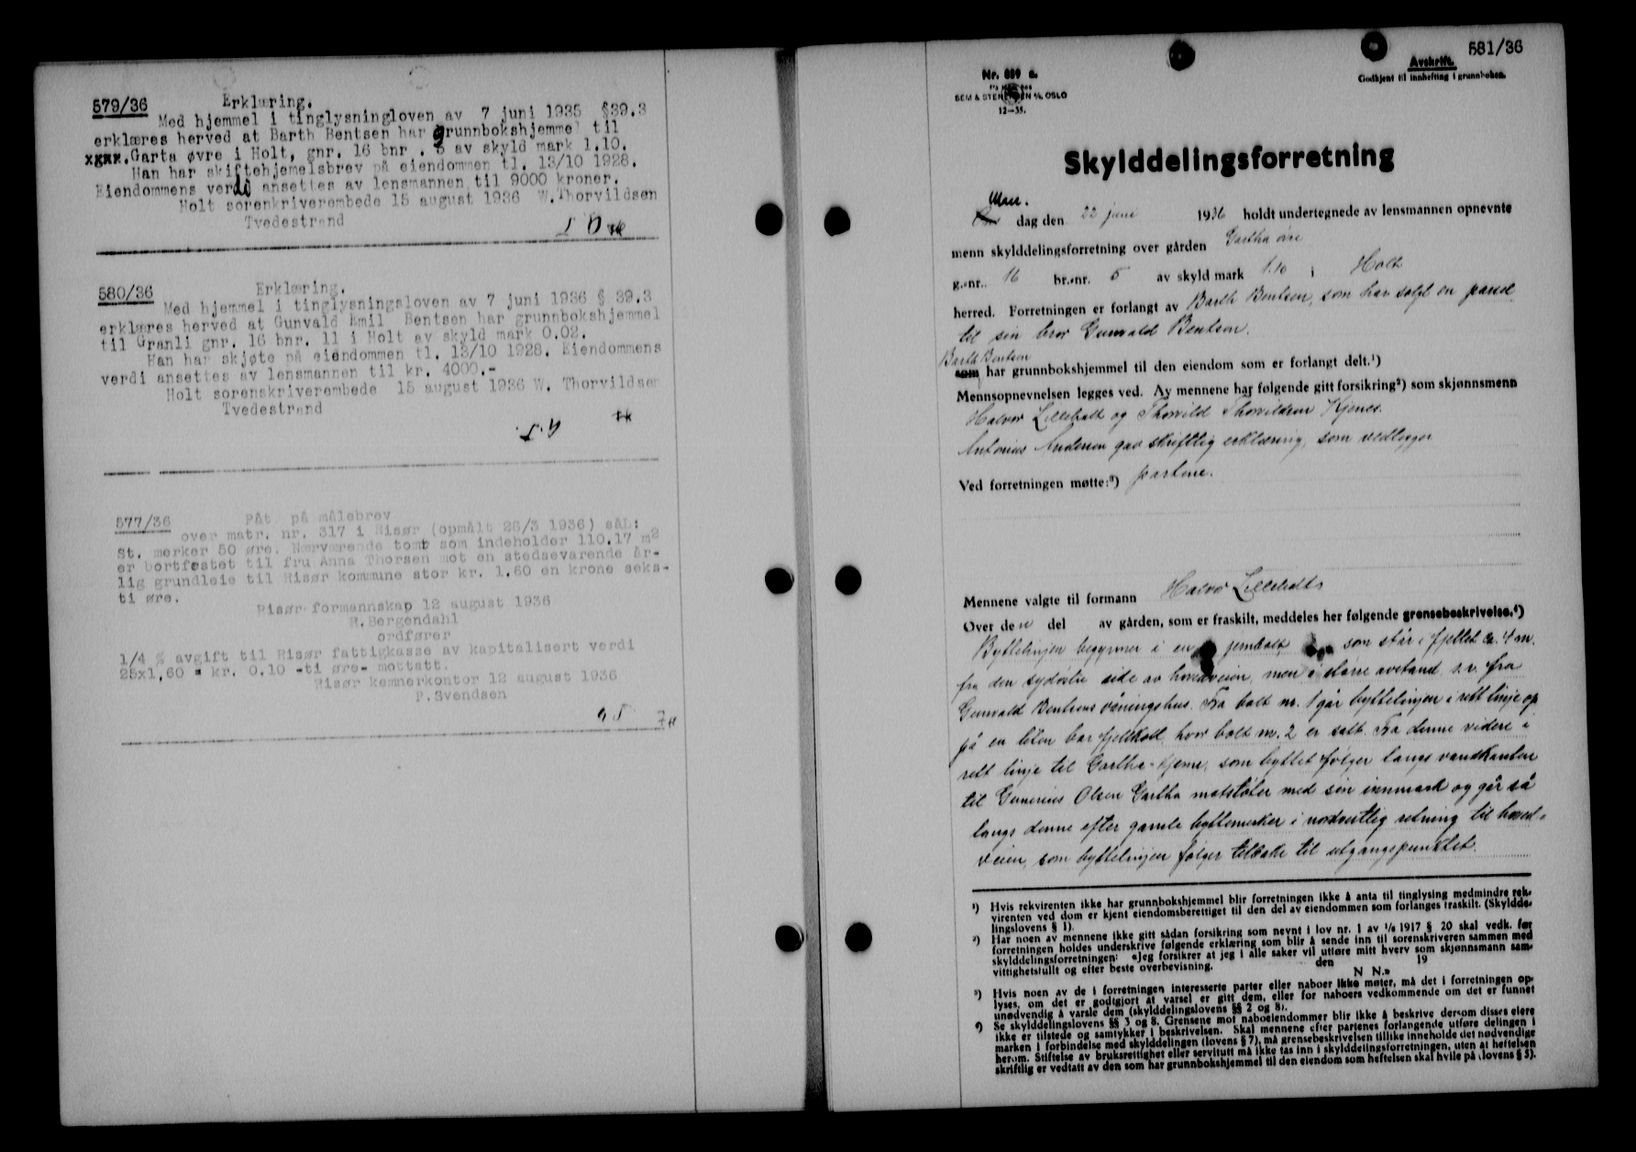 579/36 Erklæring.
Med hjemmel i tinglysningloven av 7 juni 1935 §39.3
erklæres herved at Barth Bentsen har grunnbokshjemmel til
xgnr. Garta øvre i Holt, gnr. 16 bnr . 5 av skyld mark 1.10.
Han har skiftehjemelsbrev på eiendommen tl. 13/10 1928.
Eiendommens verdi ansettes av lensmannen til 9000 kroner.
Holt sorenkriverembede 15 august 1936 W.Thorvildsen
Tvedestrand
580/36 Erklæring.
Med hjemmel i tinglysningsloven av 7 juni 1936 § 39.3
erklæres herved at Gunvald Emil Bentsen har grunnbokshjemmel
til Granli gnr. 16 bnr. 11 i Holt av skyld mark 0.02.
Han har skjøte på eiendommen tl. 13/10 1928. Eiendommens
verdi ansettes av lensmannen til kr. 4000.-
Holt sorenskriverembede 15 august 1936 W. Thorvildsen
Tvedestrand
577/36 Påt. på målebrev
over matr. nr. 317 i Risør (opmålt 26/3 1936) sål:
St. merker 50 øre. Nærværende tomt som indeholder 110.17 m2
er bortfestet til fru Anna Thorsen mot en stedsevarende år-
lig grundleie til Risør kommune stor kr. 1.60 en krone seks-
ti øre.
Risør formannskap 12 august 1936
H.Bergendahl
ordfører
1/4 % avgift til Risør fattigkasse av kapitalisert verdi
25x1,60 = kr. 0.10 -ti øre- mottatt.
Risør kemnerkontor 12 august 1936
P.Svendsen
581/36
Avskrift.
Godkjent til innhefting i grunnboken.
Nr. 859 a.
SEM & STENERSEN A/S, OSLO
12—35.
Skylddelingsforretning
Man.
dag den 22 juni 1936 holdt undertegnede av lensmannen opnevnte
menn skylddelingsforretning over gården Gartha øvre
g.-nr. 16 br.-nr. 5 av skyld mark 1.10 i Holt
herred. Forretningen er forlangt av Barth Bentsen, som har solgt en parsel
til sin bror Gunvald Bentsen.
Barth Bentsen
som har grunnbokshjemmel til den eiendom som er forlangt delt.¹)
Mennsopnevnelsen legges ved. Av mennene har følgende gitt forsikring²) som skjønnsmenn
Halvor Lilleholt og Thorvild Thorvildsen Kjenes.
Antonius Andersen gav skriftlig erklæring, som vedlegges
Ved forretningen møtte:³) partene.
Mennene valgte til formann Halvor Lilleholt
Over den del av gården, som er fraskilt, meddeles her følgende grensebeskrivelse.⁴)
Byttelinjen begynner i en jernbolt som står i fjellet ca. 4 m.
fra den sydøstre side av hovedveien, men i større avstand s.v. fra
Gunvald Bentsens våningshus. Fra bolt nr. 1 går byttelinjen i rett linje op
på en liten bar fjellkoll, hvor bolt nr. 2 er satt. Fra denne videre i
rett linje til Gartha-tjenn, som byttet følger langs vandkanten
til Gunerius Olsen Gartha møter med sin innmark og går så
langs denne efter gamle byttemerker i nordvestlig retning til hoved-
veien, som byttelinjen følger tilbake til utgangspunktet.
¹) Hvis rekvirenten ikke har grunnbokshjemmel blir forretningen ikke å anta til tinglysing medmindre rek-
virenten ved dom er kjent eiendomsberettiget til den del av eiendommen som forlanges fraskilt. (Skyldde-
lingslovens § 1).
²) Har noen av mennene ikke gitt sådan forsikring som nevnt i lov nr. 1 av 1/6 1917 § 20 skal vedk. før
forretningen holdes underskrive følgende erklæring som blir å sende inn til sorenskriveren sammen med
skylddelingsforretningen: «Jeg forsikrer at jeg i alle saker vil utføre mitt hverv som skjønnsmann sam-
vittighetsfullt og efter beste overbevisning. den 19
N N.»
³) Hvis noen av de i forretningen interesserte parter eller naboer ikke møter, må det i forretningen op-
lyses, om det er godtgjort at varsel er gitt dem, eller for naboers vedkommende om det er funnet
unødvendig å varsle dem (skylddelingslovens §§ 2 og 8).
⁴) Se skylddelingslovens §§ 3 og 8. Grensene mot naboeiendommer blir ikke å beskrive dersom disses eiere
ikke er tilstede og samtykker i beskrivelsen. Skal mennene efter partenes forlangende utføre delingen i
marken i forbindelse med skylddelingen (lovens § 7), må grensebeskrivelsen tillike inneholde det nødvendige
herom. Stiftelse av bruksrettighet eller servitutt må ikke tas inn i skylddelingsforretningen, uten at heftelsen
skriftlig er vedtatt av den som har grunnbokshjemmel til den eiendom som heftelsen skal hvile på (lovens § 5).